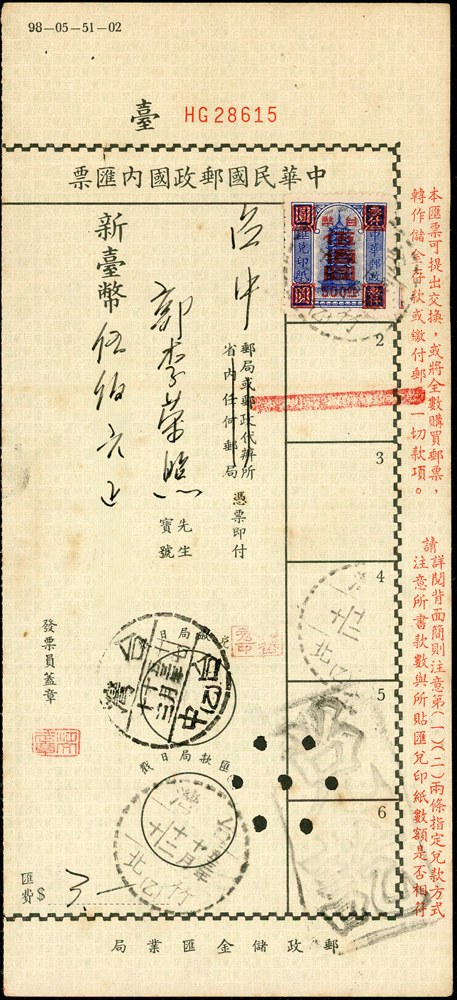 98-05-51-02
臺 HG28615
中華民國郵政國內匯票
本匯票可提出交換，或將全數購買郵票，
轉作儲金存款或繳付郵 一切款項。
請詳閱背面簡則注意第(一)(二)兩條指定兌款方式
注意所書款數與所貼匯兌印紙數額是否相符
台幣
伍佰圓
500
2
3
4
5
6
台中
郵局或郵政代辦所
省內任何郵局
憑票即付
郭李榮
先生
寶號
新臺幣伍佰元正
兌款局日戳
台灣
台中
匯款局日戳
竹北
發票員蓋章
匯費$ 3.—
郵政儲金匯業局